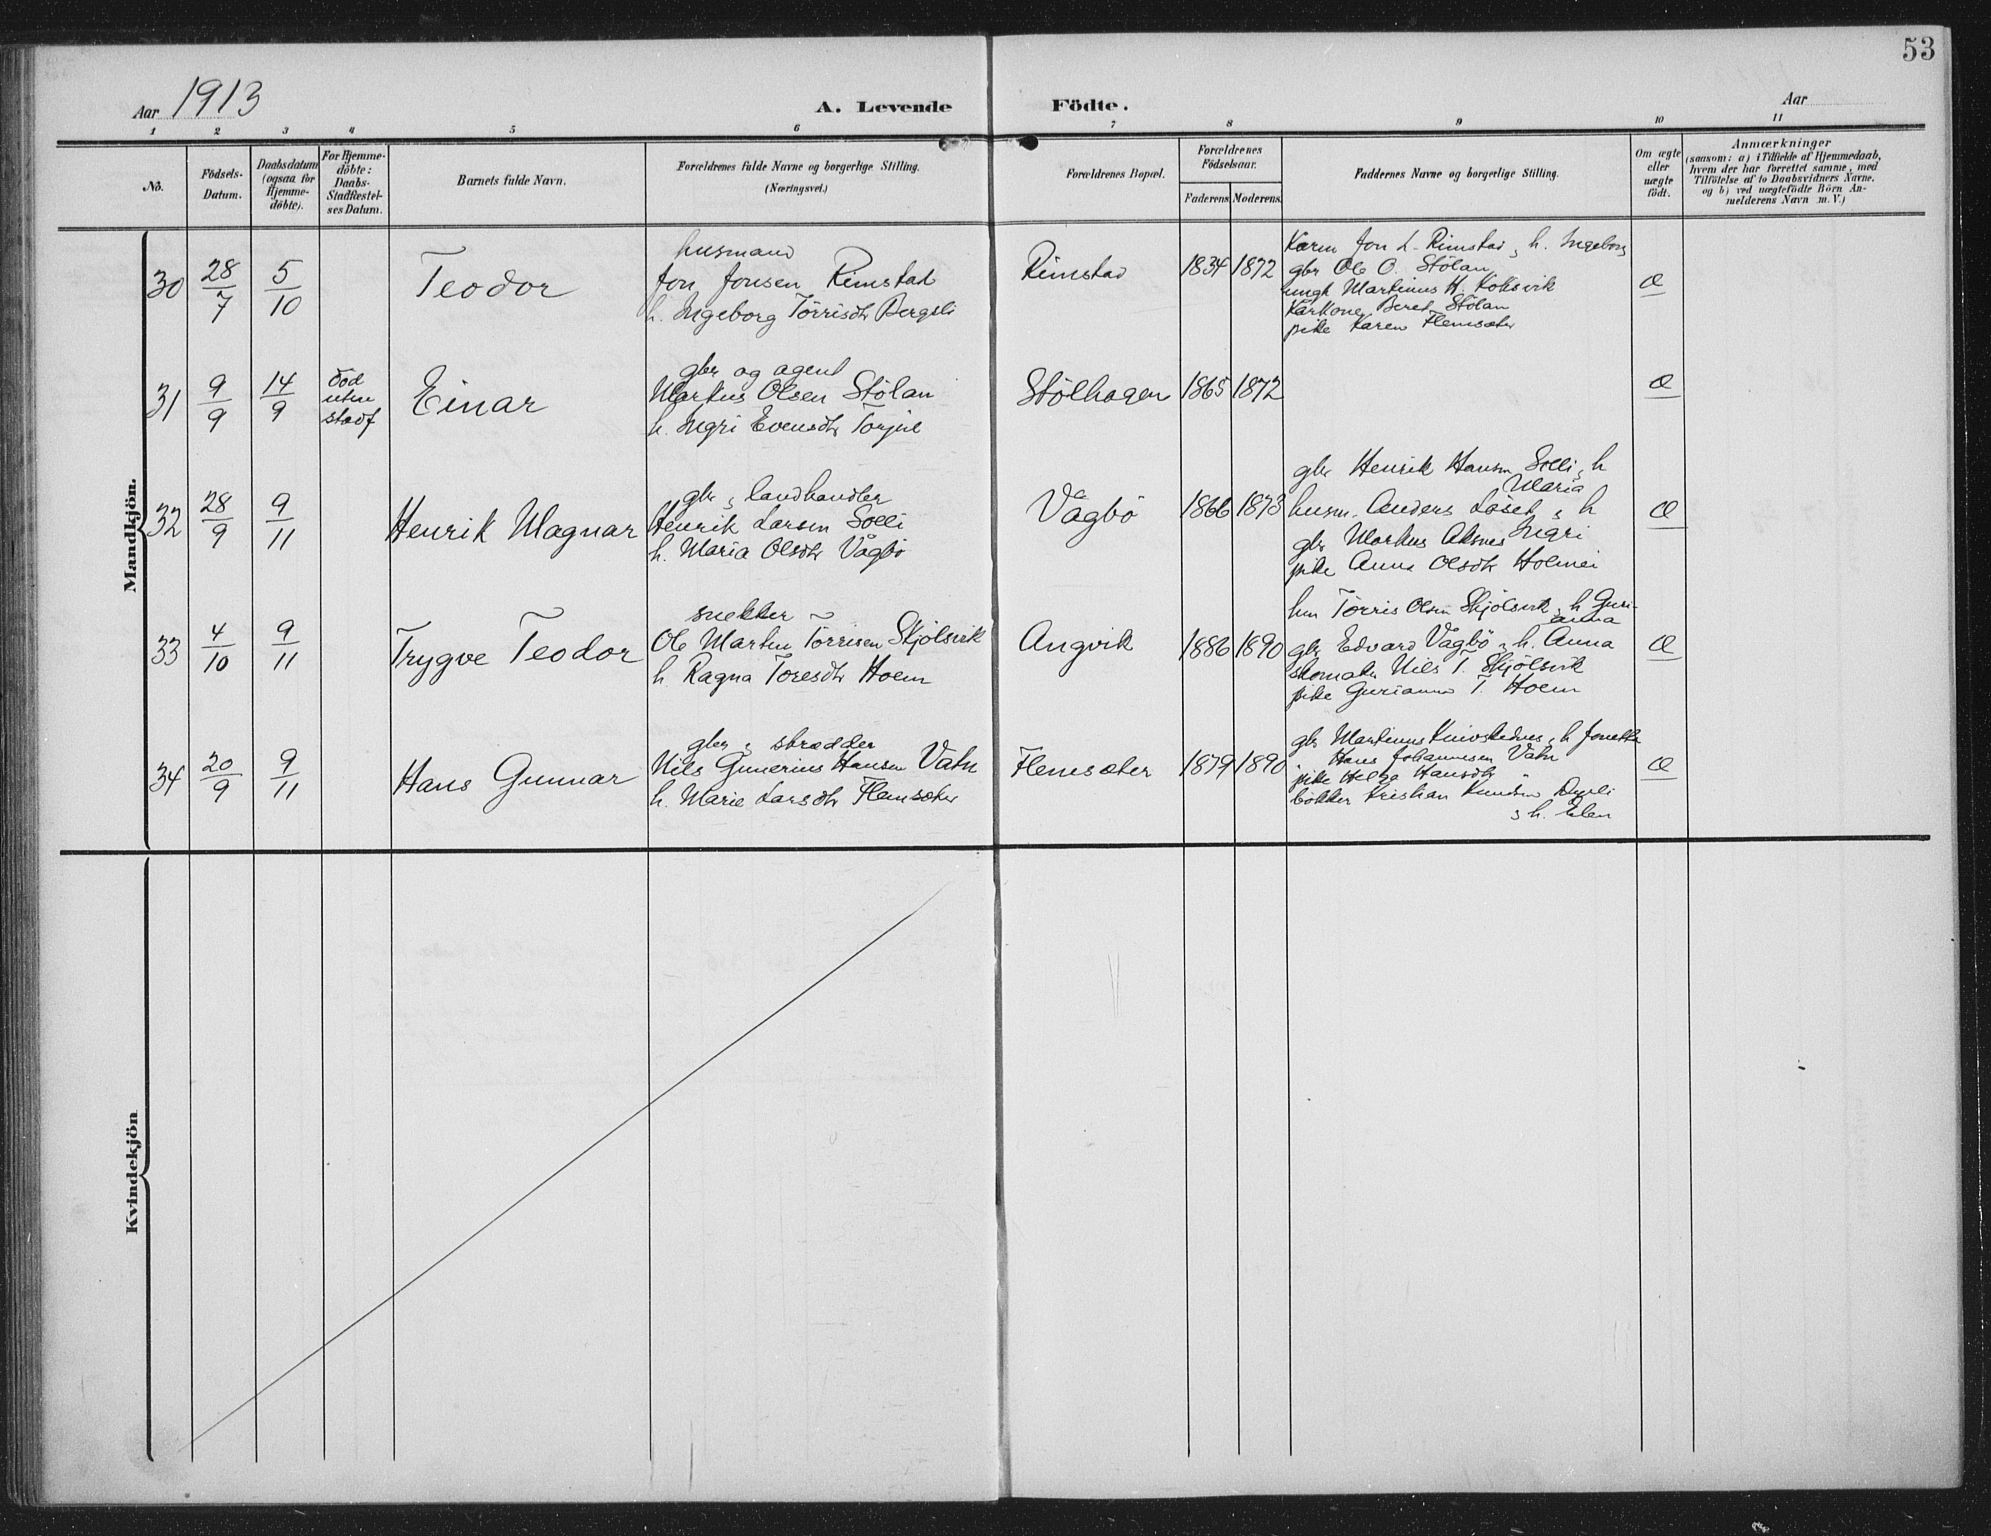 53
Aar 1913
A. Levende Födte.
Aar
1 2 3 4 5 6 7 8 9 10 11
No.
Födsels-
Datum.
Daabsdatum
(ogsaa for
Hjemme-
döbte).
For Hjemme-
döbte:
Daabs-
Stadfæstel-
ses Datum.
Barnets fulde Navn.
Forældrenes fulde Navne og borgerlige Stilling.
(Næringsvei.)
Forældrenes Bopæl.
Forældrenes
Födselsaar.
Faderens Moderens
Faddernes Navne og borgerlige Stilling.
Om ægte
eller
uægte
födt.
Anmærkninger
(saasom: a) i Tilfælde af Hjemmedaab,
hvem der har forrettet samme, med
Tilföielse af to Daabsvidners Navne.
og b) ved uægtefödte Börn An-
melderens Navn m. V.)
Mandkjön.
30
28/7
5/10
Teodor
husmand
Jon Jonsen Rimstad
h. Ingeborg Törrisdtr Bergsli
Rimstad
1834 1872
Jon L. Rimstad, h. Ingeborg
gbr Ole O. Stölan
ungk Martinus H. Koksvik
Kårkone Beret Stölan
pike Karen Flemsæter
Æ
31
9/9
14/9
död
uten
stadf
Einar
gbr og agent
Markus Olsen Stölan
h. Ingri Evensdtr Torjul
Stölhagen
1865 1872
Æ
32
28/9
9/11
Henrik Magnar
gbr, landhandler
Henrik Larsen Solli
h. Maria Olsdtr Vågbö
Vågbö
1866 1873
gbr Henrik Hansen Solli, h
Maria
husm. Anders Löset, h
Ingri
gbr Markus Aksnes
pike Anna Olsdtr Holmei
Æ
33
4/10
9/11
Trygve Teodor
snekker
Ole Martin Törrisen Skjölsvik
h. Ragna Toresdtr Hoem
Angvik
1886 1890
Törris Olsen Skjölsvik, h Guri-
anna
gbr Edvard Vågbö, h. Anna
skomaker Nils T. Skjölsvik
pike Gurianna T. Hoem
Æ
34
20/9
9/11
Hans Gunnar
gbr, skrædder
Nils Gunerius Hansen Vatn
h. Marie Larsdtr Flemsæter
Flemsæter
1879 1890
gbr Martinus, h Jonetta
" Hans Johannesen Vatn
pike Helga Hansdtr "
bökker Kristian Knudsen
, h. Elen
Æ
Kvindekjön